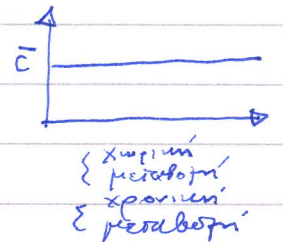 C̄
{ χωρική
μεταβολή
{ χρονική
μεταβολή